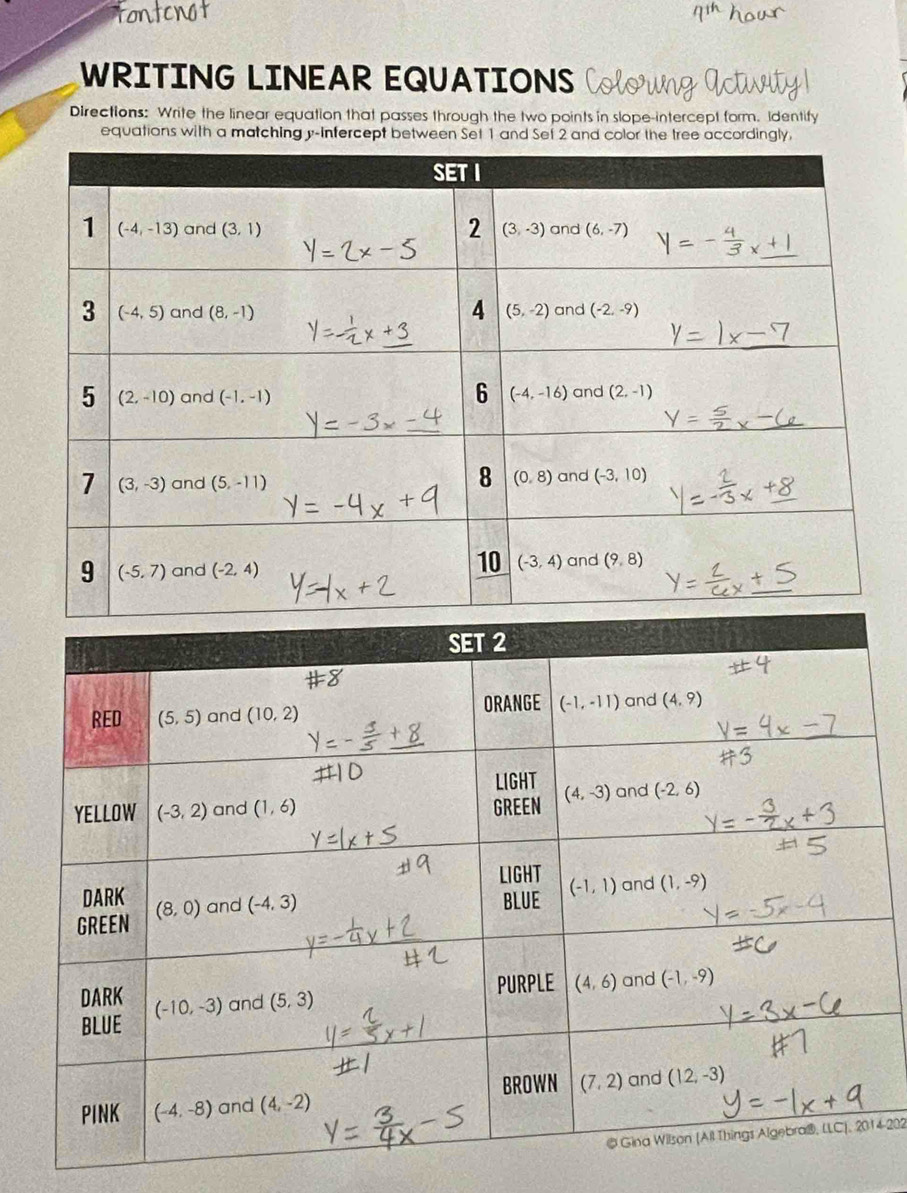 Fontenot
7th hour
WRITING LINEAR EQUATIONS Coloring activity!
Directions: Write the linear equation that passes through the two points in slope-intercept form. Identify
equations with a matching y-intercept between Set 1 and Set 2 and color the tree accordingly.
SET 1
1 (-4, -13) and (3, 1) y = 2x - 5
2 (3, -3) and (6, -7) y = -4/3 x + 1
3 (-4, 5) and (8, -1) y = -1/2 x + 3
4 (5, -2) and (-2, -9) y = 1x - 7
5 (2, -10) and (-1, -1) y = -3x - 4
6 (-4, -16) and (2, -1) y = 5/2 x - 6
7 (3, -3) and (5, -11) y = -4x + 9
8 (0, 8) and (-3, 10) y = -2/3 x + 8
9 (-5, 7) and (-2, 4) y = -1x + 2
10 (-3, 4) and (9, 8) y = 2/6 x + 5
SET 2
#8
RED (5, 5) and (10, 2) y = -3/5 + 8
#4
ORANGE (-1, -11) and (4, 9) y = 4x - 7
#10
YELLOW (-3, 2) and (1, 6) y = 1x + 5
#3
LIGHT GREEN (4, -3) and (-2, 6) y = -3/2 x + 3
#9
DARK GREEN (8, 0) and (-4, 3) y = -1/4 x + 2
#5
LIGHT BLUE (-1, 1) and (1, -9) y = -5x - 4
#2
DARK BLUE (-10, -3) and (5, 3) y = 2/5 x + 1
#6
PURPLE (4, 6) and (-1, -9) y = 3x - 6
#1
PINK (-4, -8) and (4, -2) y = 3/4 x - 5
#7
BROWN (7, 2) and (12, -3) y = -1x + 9
© Gina Wilson (All Things Algebra®, LLC), 2014-202